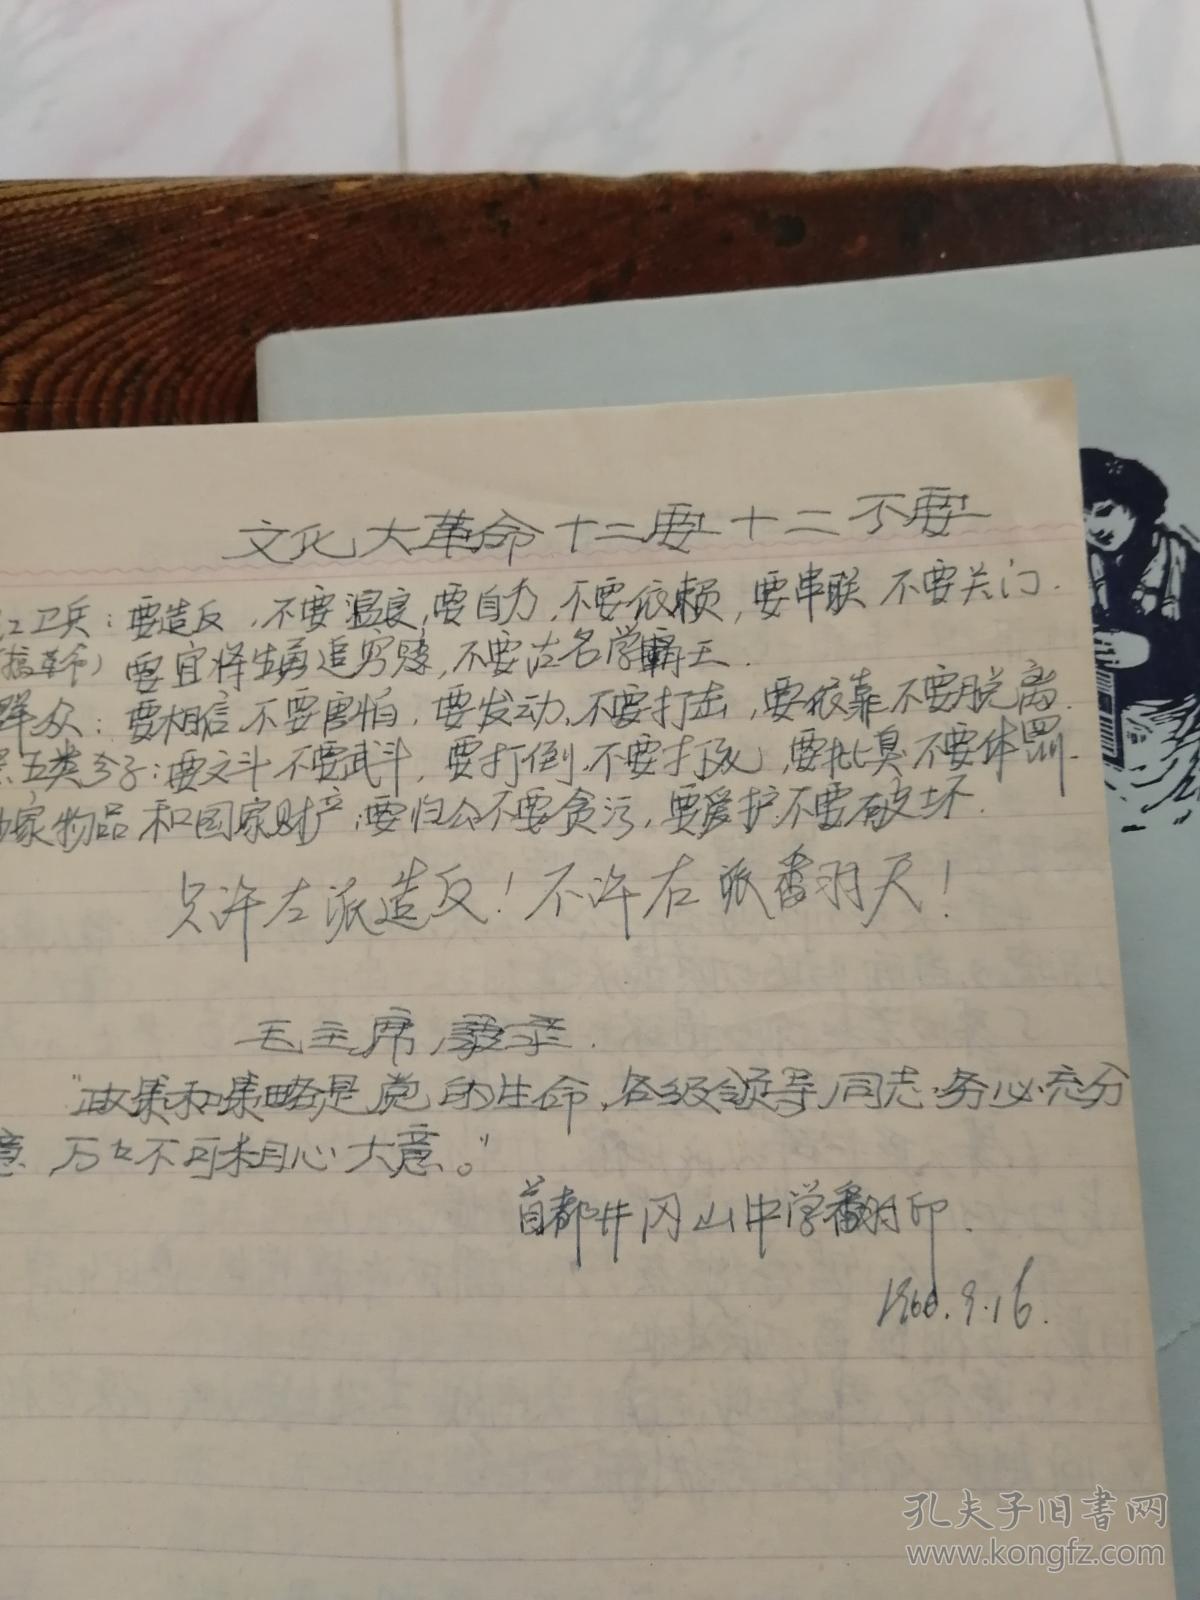 文化大革命十二要十二不要
红卫兵：要造反，不要温良，要自力，不要依赖，要串联 不要关门．
（搞革命）要宜将剩勇追穷寇，不要沽名学霸王．
群众：要相信 不要害怕，要发动，不要打击，要依靠 不要脱离．
五类分子：要文斗 不要武斗，要打倒 不要打死，要批臭 不要体罚．
家物品和国家财产，要归公不要贪污，要爱护 不要破坏．
只许左派造反！不许右派翻天！
毛主席语录．
"政策和策略是党的生命，各级领导同志 务必充分
意，万々不可粗心大意。"
首都井冈山中学翻印．
1966.9.16.
孔夫子旧书网
www.kongfz.com